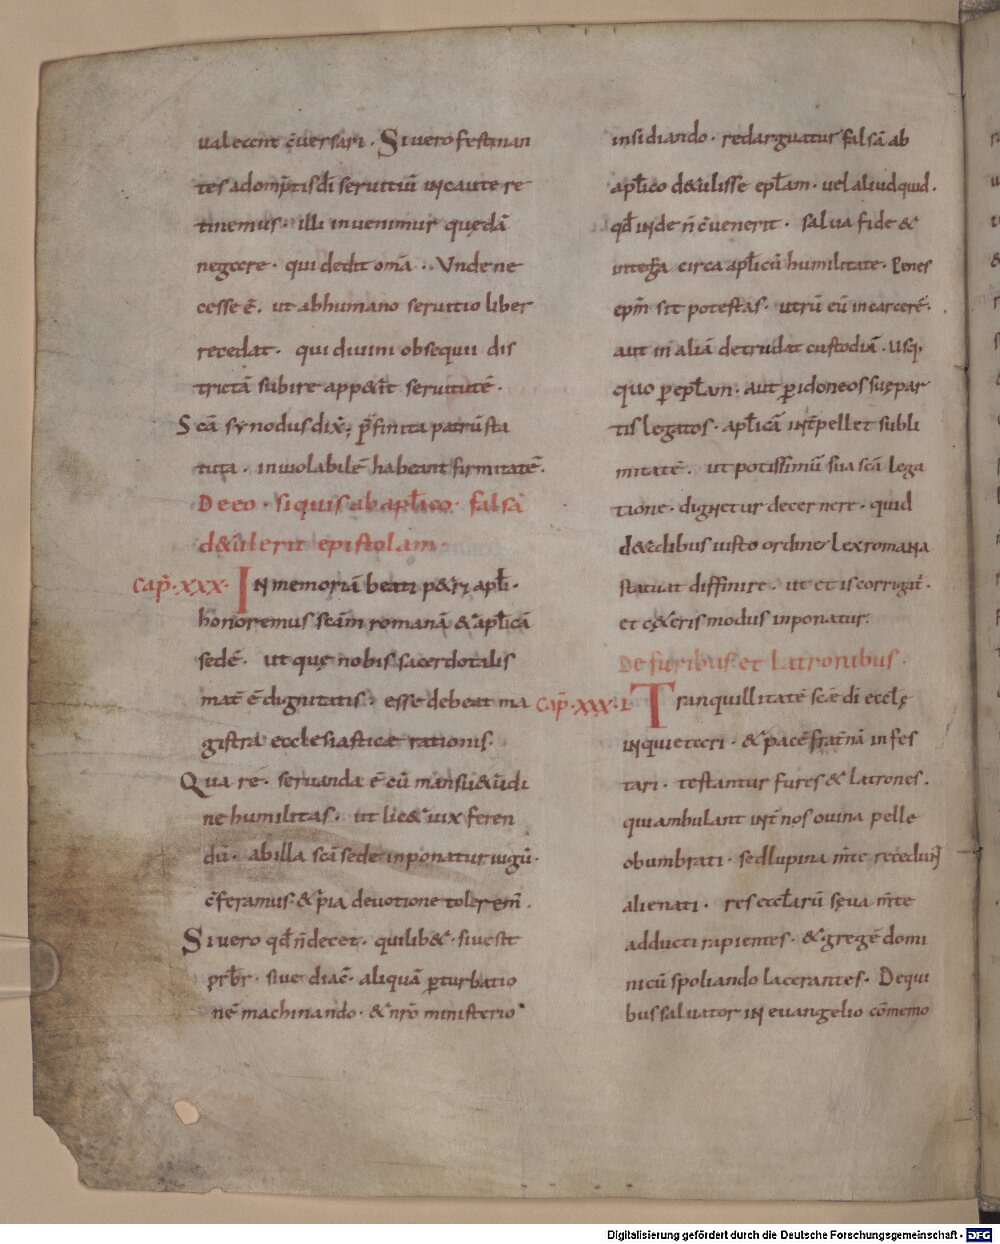 ualerent c̄uersari. Si uero festinan
tes adomp̄tis dī seruitiū incaute re
tinemus. illi inuenimur quędā
negare. qui dedit om̄a. Vnde ne
cesse ē. ut ab humano seruitio liber
recedat. qui diuini obsequii dis
trictā subire app&it seruitutē.
Scā synodus dix̄; p̄finita patrū sta
tuta. inuiolabilē habeant firmitatē.
De eo. siquis ab apłico. falsā
d&ulerit epistolam.
Cap̄. XXX. IN memoriā beati p&ri apłi.
honoremus scām romanā & apłicā
sedē. ut quę nobis sacerdotalis
mat̄ ē dignitatis. esse debeat ma
gistra ecclesiasticæ rationis.
Qua re. seruanda ē cū mansu&udi
ne humilitas. ut lic& uix feren
dū. ab illa scā sede inponatur iugū.
c̄feramus. & pia deuotione tolerem̄.
Si uero qđ n̄ decet. quilib&. siue sit
prb̄r. siue diac̄. aliquā ꝑturbatio
nē machinando. & nr̄o ministerio
insidiando. redarguatur falsā ab
apłico d&ulisse epłam. uel aliud quid.
qđ inde n̄ c̄uenerit. salua fide &
integra circa apłicū humilitate. Penes
ep̄m sit potestas. utrū eū in carcerē.
aut in aliā detrudat custodiā. usq;
quo ꝑ epłam. aut ꝑ idoneos suę par
tis legatos. apłicā int̄pellet subli
mitatē. ut potissimū sua scā lega
tione. dignetur decernere. quid
de talibus iusto ordine lex romana
statuat diffinire. ut et is corrigat̄.
et c&eris modus inponatur.
De furibus et latronibus.
Cap̄. XXX. I Tranquillitatē scæ dī ecclę
inquietari. & pacē frat̄nā infes
tari. testantur fures & latrones.
qui ambulant int̄ nos ouina pelle
obumbrati. sed lupina m̄te recedunt
alienati. res eccłarū sęua m̄te
adducti rapientes. & gregē domi
nicū spoliando lacerantes. De qui
bus saluator in euangelio cōmemo
Digitalisierung gefördert durch die Deutsche Forschungsgemeinschaft - DFG